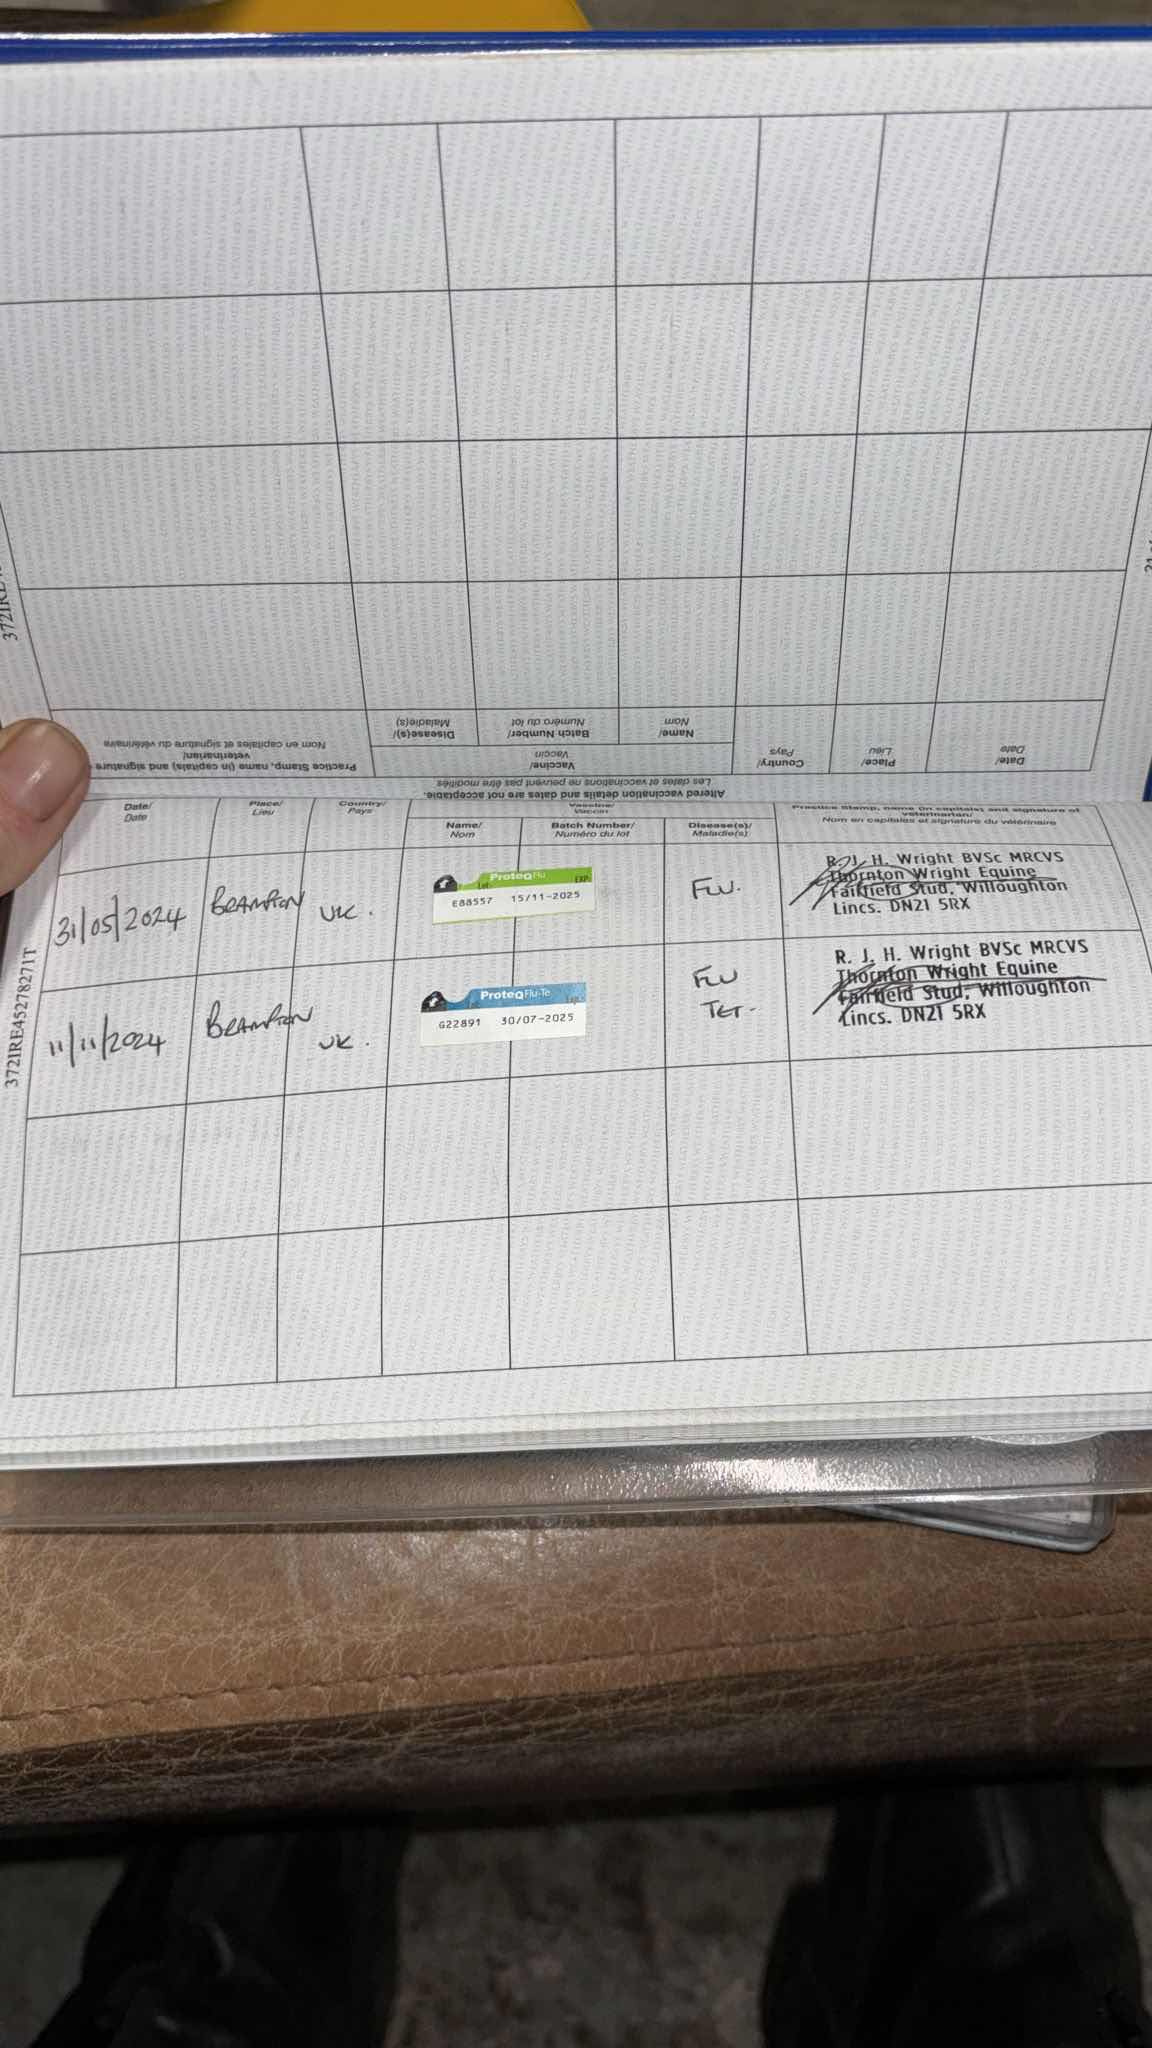 372IRE
Practice Stamp, name (in capitals) and signature
veterinarian/
Nom en capitales et signature du vétérinaire
Disease(s)/
Maladie(s)
Batch Number/
Numéro du lot
Name/
Nom
Vaccine/
Vaccin
Country/
Pays
Place/
Lieu
Date/
Date
Altered vaccination details and dates are not acceptable.
Les dates et vaccinations ne peuvent pas être modifiés
Date/
Date
Place/
Lieu
Country/
Pays
Vaccine/
Vaccin
Name/
Nom
Batch Number/
Numéro du lot
Disease(s)/
Maladie(s)
Practice Stamp, name (in capitals) and signature of
veterinarian/
Nom en capitales et signature du vétérinaire
31/05/2024
BRAMPTON
UK.
ProteqFlu
Lot: EXP:
E88557 15/11-2025
FLU.
R. J. H. Wright BVSc MRCVS
Thornton Wright Equine
Fairfield Stud, Willoughton
Lincs. DN21 5RX
11/11/2024
BRAMPTON
UK.
ProteqFlu-Te
Lot: Exp:
G22891 30/07-2025
FLU
TET.
R. J. H. Wright BVSc MRCVS
Thornton Wright Equine
Fairfield Stud, Willoughton
Lincs. DN21 5RX
372IRE45278271T